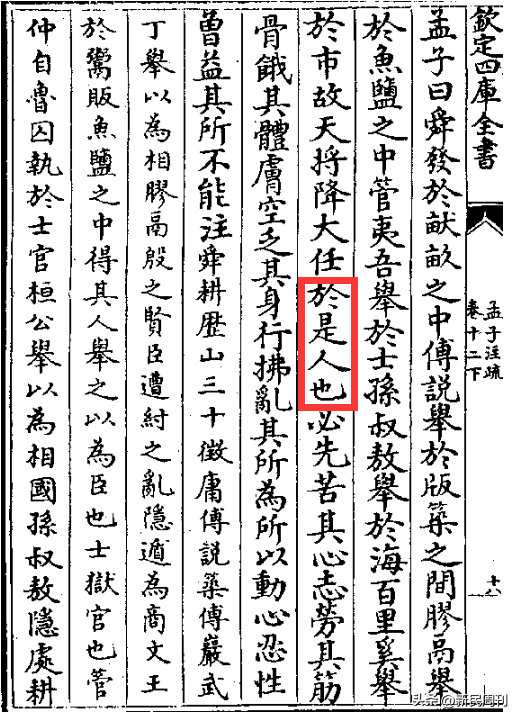 欽定四庫全書
孟子注疏
卷十二下
十八
孟子曰舜發於畎畝之中傅說舉於版築之間膠鬲舉
於魚鹽之中管夷吾舉於士孫叔敖舉於海百里奚舉
於市故天將降大任於是人也必先苦其心志勞其筋
骨餓其體膚空乏其身行拂亂其所為所以動心忍性
曾益其所不能注舜耕歷山三十徵庸傅說築傅巖武
丁舉以為相膠鬲殷之賢臣遭紂之亂隱遁為商文王
於鬻販魚鹽之中得其人舉之以為臣也士獄官也管
仲自魯囚執於士官桓公舉以為相國孫叔敖隱處耕
头条@新民周刊